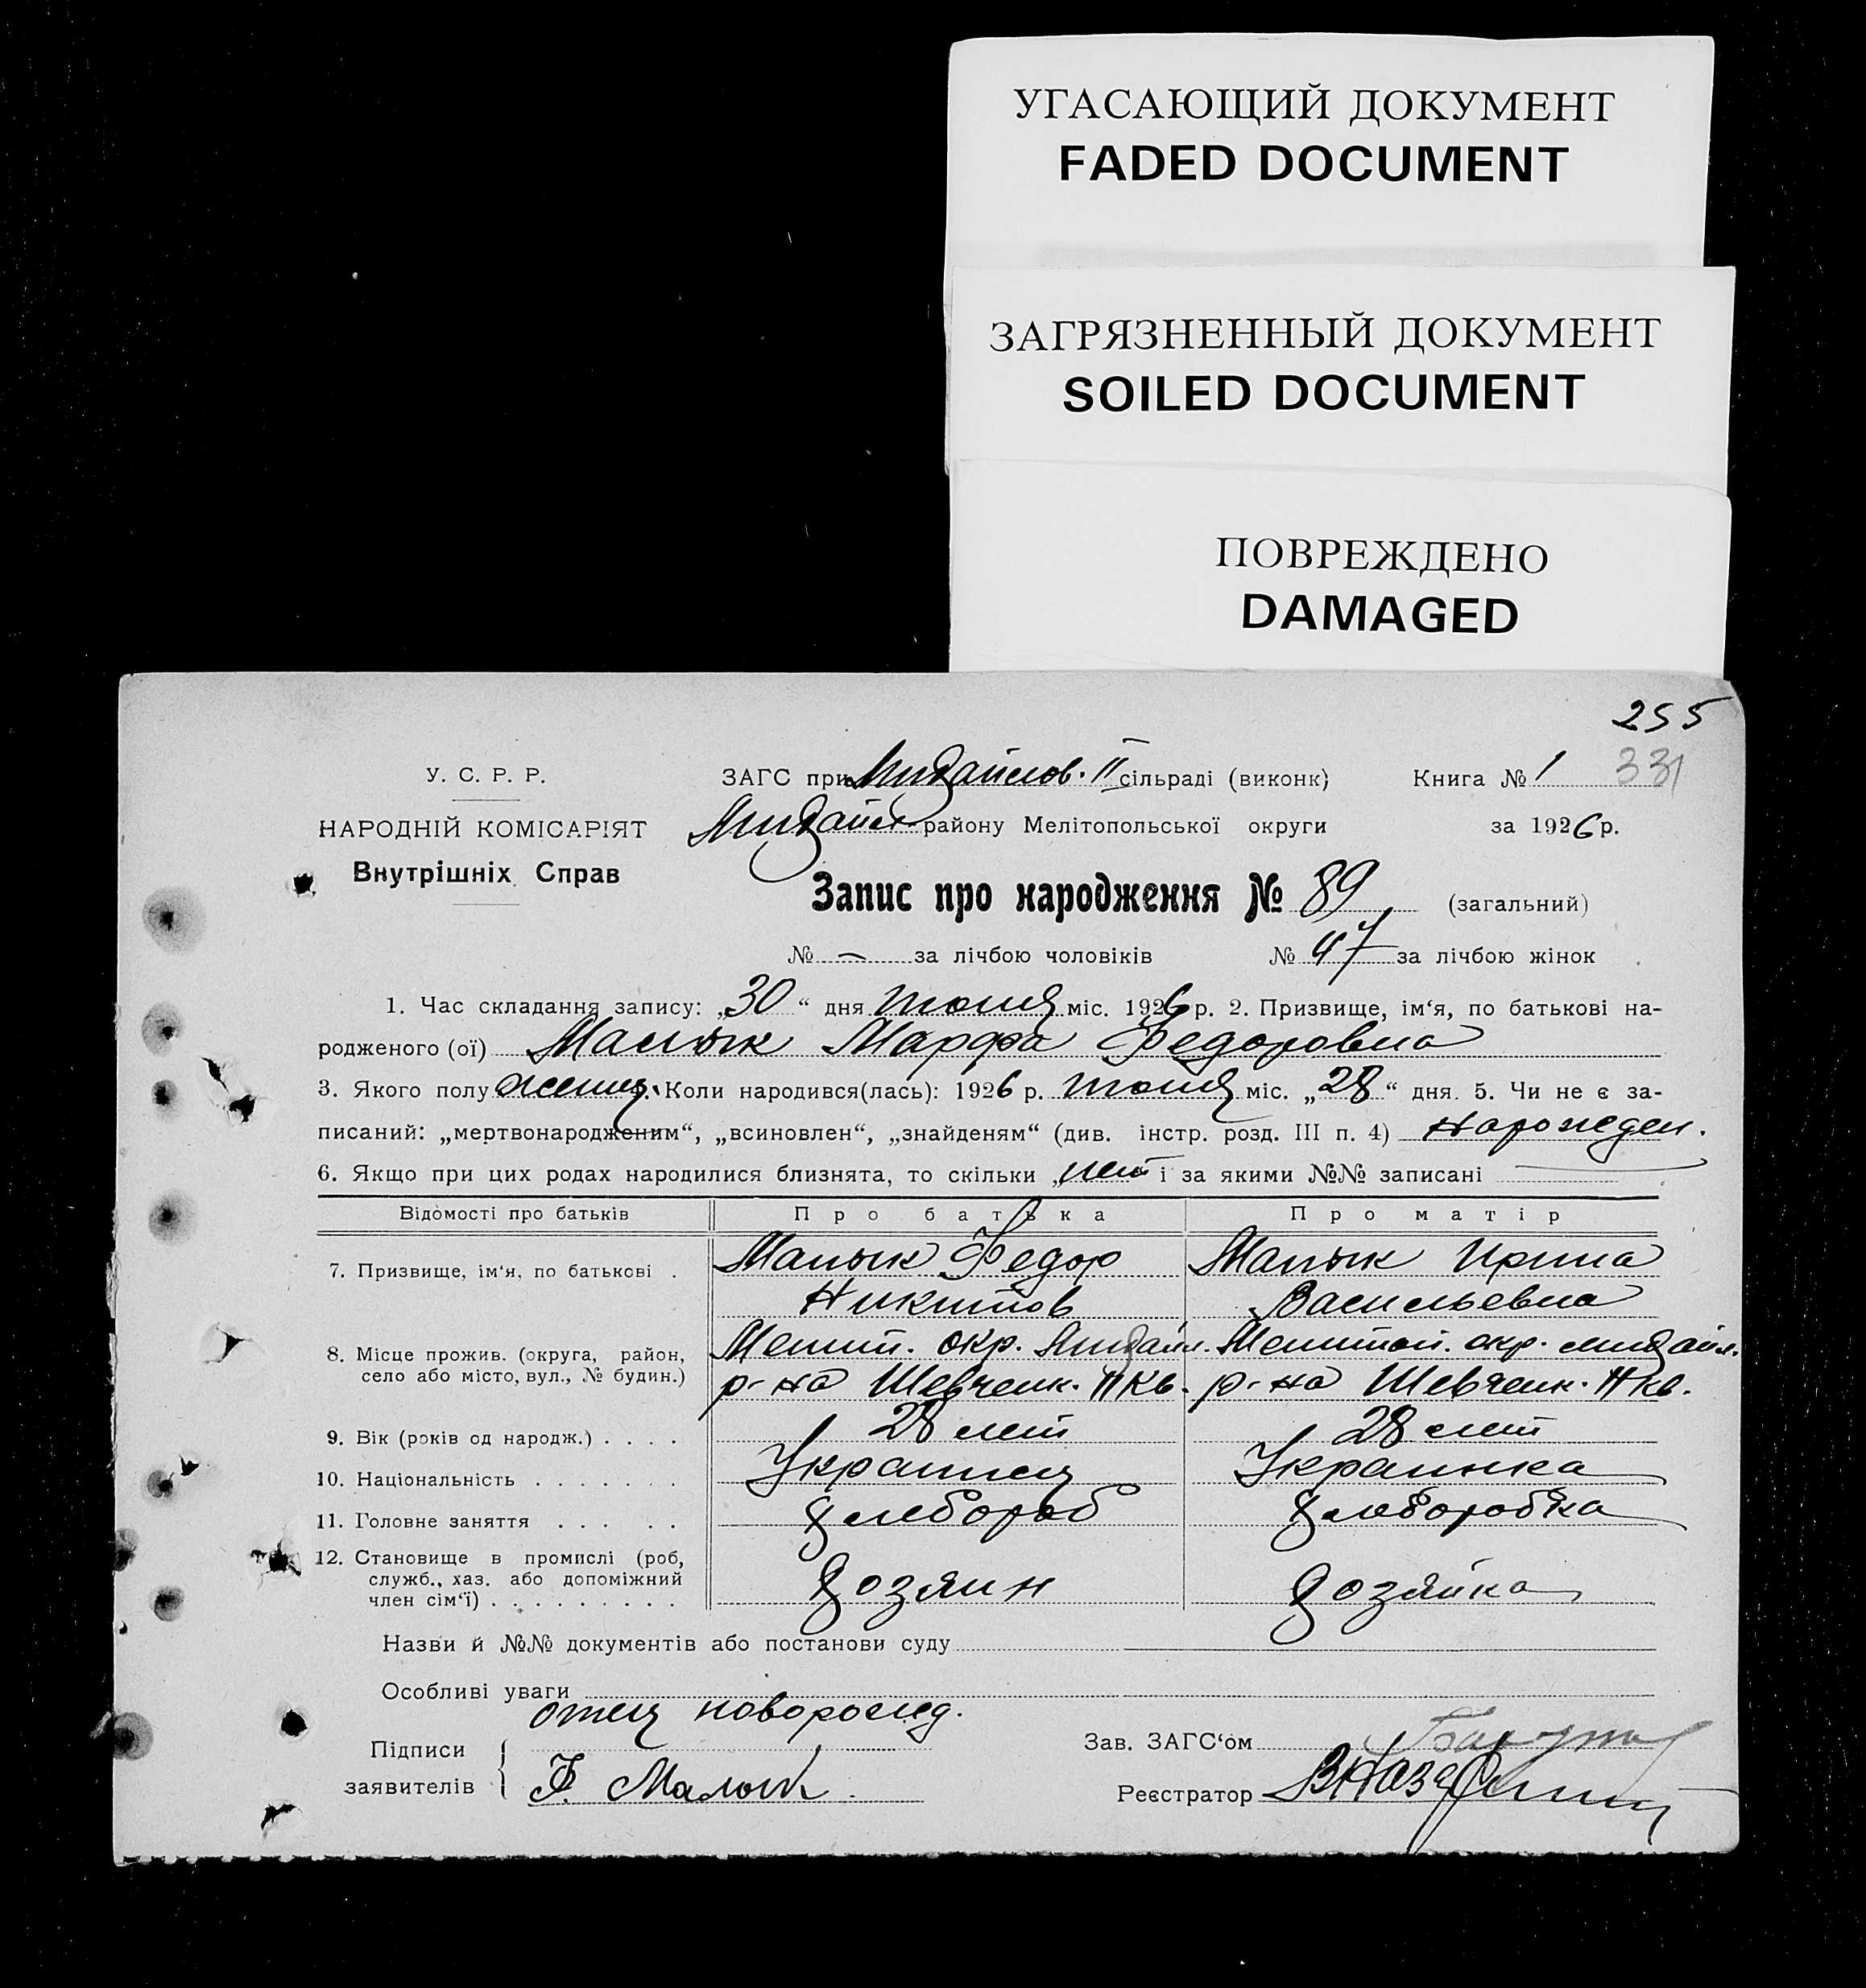 УГАСАЮЩИЙ ДОКУМЕНТ
FADED DOCUMENT
ЗАГРЯЗНЕННЫЙ ДОКУМЕНТ
SOILED DOCUMENT
ПОВРЕЖДЕНО
DAMAGED
255
331
У. С. Р. Р.
НАРОДНІЙ КОМІСАРІЯТ
Внутрішніх Справ
ЗАГС при Михайлов. II сільраді (виконк) Книга № 1
Михайл району Мелітопольської округи за 1926 р.
Запис про народження № 89 (загальний)
№ — за лічбою чоловіків № 47 за лічбою жінок
1. Час складання запису: „30“ дня июня міс. 1926 р. 2. Призвище, ім‘я, по батькові на-
родженого (ої) Малык Марфа Федоровна
3. Якого полу женщ. Коли народився(лась): 1926 р. июня міс. „28“ дня. 5. Чи не є за-
писаний: „мертвонародженим“, „всиновлен“, „знайденям“ (див. інстр. розд. III п. 4) нарожден.
6. Якщо при цих родах народилися близнята, то скільки „нет і за якими №№ записані
Відомості про батьків Про батька Про матір
7. Призвище, ім‘я, по батькові . Малык Федор Малык Ирина
Никитов Васильевна
8. Місце прожив. (округа, район, Мелит. окр. Михайл. Мелитоп. окр. Михайл.
село або місто, вул., № будин.) р-на Шевченк. II кв. р-на Шевченк. II кв.
9. Вік (років од народж.) . . . . 28 лет 28 лет
10. Національність . . . . . . . Украинец Украинка
11. Головне заняття . . . . . Хлебороб Хлеборобка
12. Становище в промислі (роб,
служб., хаз. або допоміжний Хозяин Хозяйка
член сім‘ї) . . . . . . . . .
Назви й №№ документів або постанови суду
Особливі уваги
отец новорожд.
Підписи Зав. ЗАГС‘ом
заявителів Ф. Малык Реєстратор